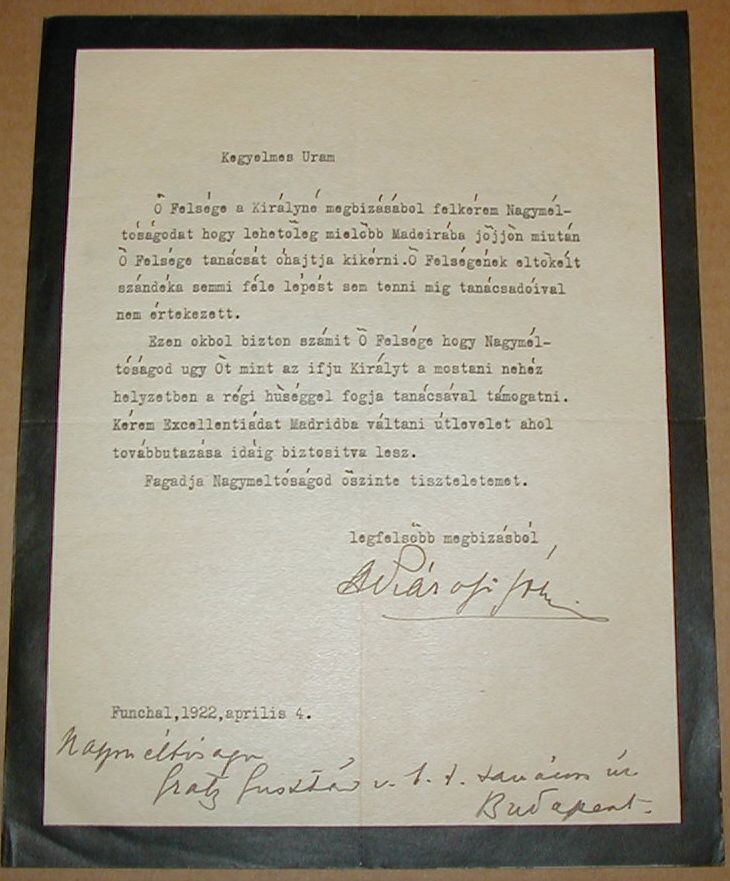 Kegyelmes Uram
Ö Felsége a Királyné megbizásábol felkérem Nagymél-
tóságodat hogy lehetöleg mielöbb Madeirába jöjjön miután
Ö Felsége tanácsát óhajtja kikérni.Ö Felségének eltökélt
szándéka semmi féle lépést sem tenni mig tanácsadóival
nem értekezett.
Ezen okbol bizton számit Ö Felsége hogy Nagymél-
tóságod ugy Öt mint az ifju Királyt a mostani nehéz
helyzetben a régi hüséggel fogja tanácsával támogatni.
Kérem Excellentiádat Madridba váltani útlevelet ahol
továbbutazása idáig biztositva lesz.
Fagadja Nagymeltóságod öszinte tiszteletemet.
legfelsöbb megbizásból
Funchal,1922,aprilis 4.
Nagyméltóságu
Gratz Gusztáv v. b. t. tanácsos úr
Budapest.